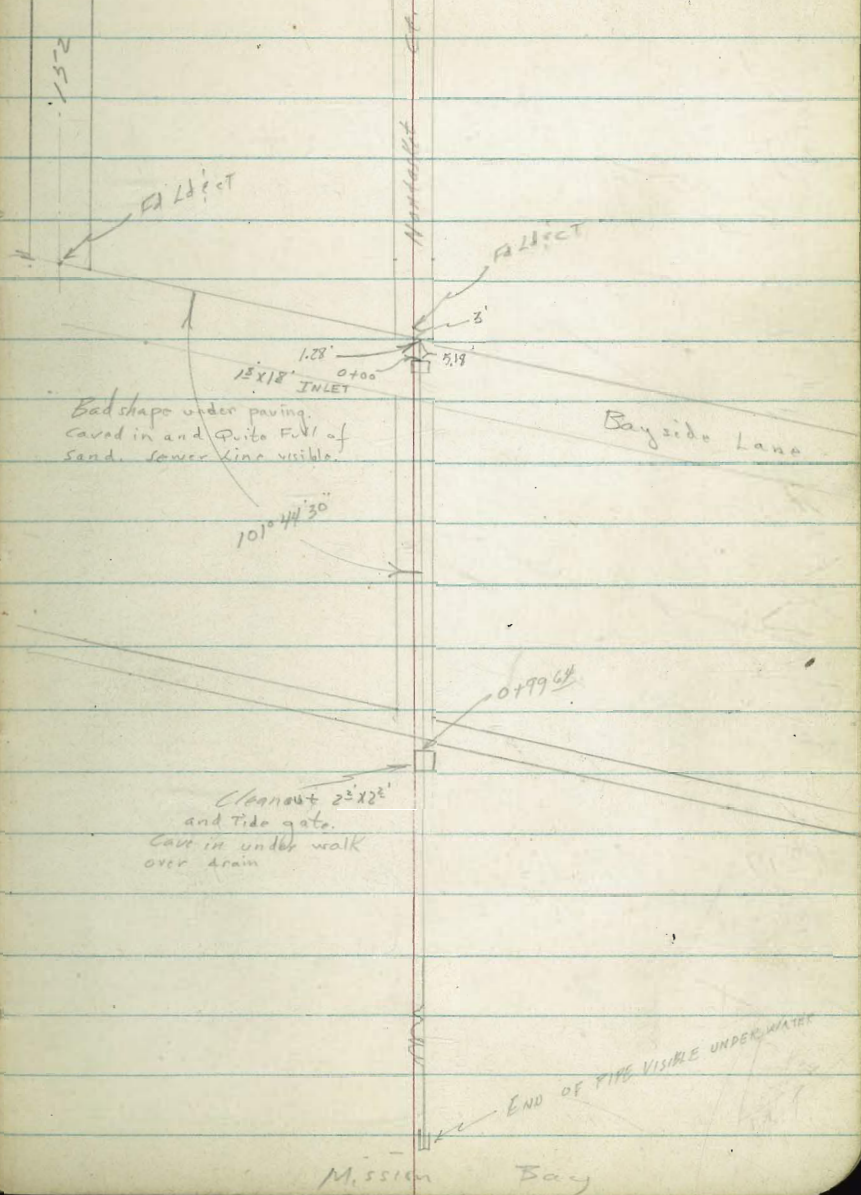 152
Nantasket Ct.
Fd Ld & CT
Fd Ld & CT
3'
1.28'
5.18'
0+00
1⁵' X 18'
INLET
Bad shape under paving.
Caved in and Quite Full of
Sand. Sewer Line visible.
Bayside Lane
101° 44' 30"
0+99 64
Cleanout 2½' X 2½'
and Tide gate.
Cave in under walk
over drain
END OF PIPE VISIBLE UNDER WATER
Mission Bay